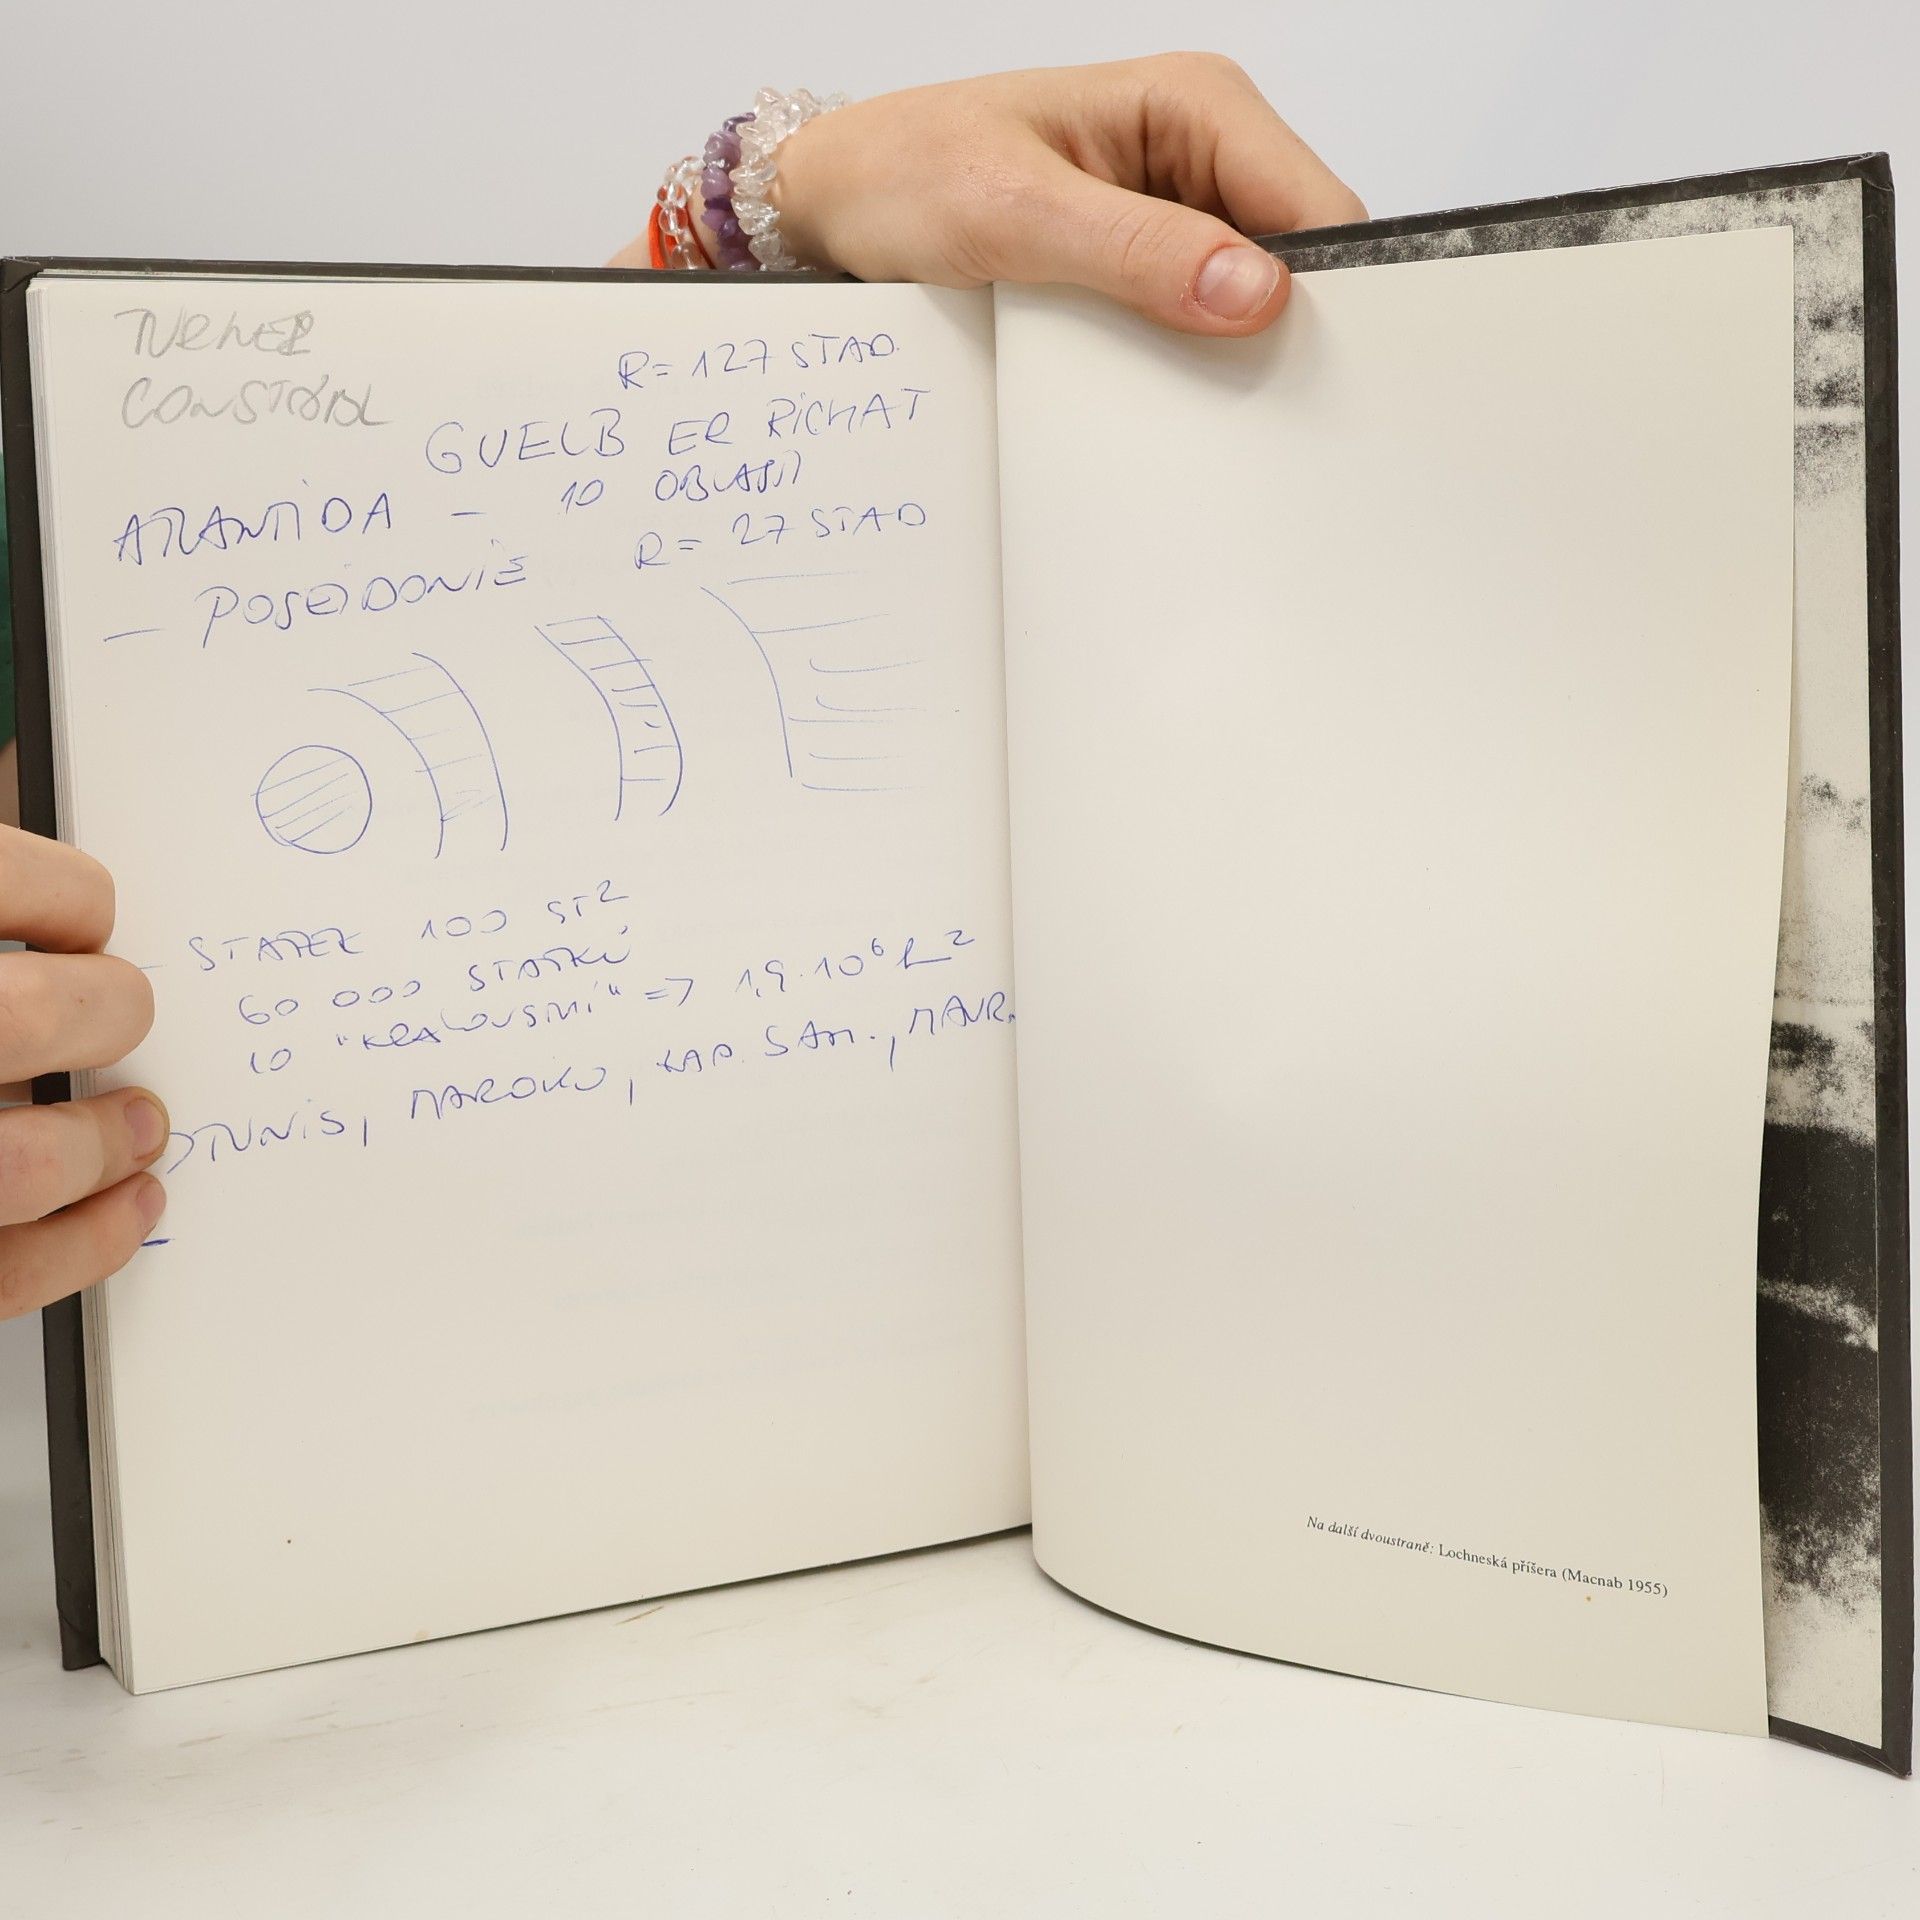 TURNER
R = 127 STAD.
GUELB ER RICHAT
ATLANTIDA – 10 OBLASTÍ
– POSEIDONIE R = 27 STAD
– STATEK 100 ST²
60 000 STATKŮ
10 "KRÁLOVSTVÍ" => 1,9·10⁶ km²
TUNIS, MAROKO, ZAP. SAH., MAUR.
–
Na další dvoustraně: Lochneská příšera (Macnab 1955)